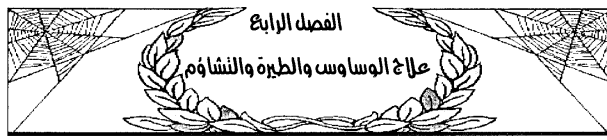 الفصل الرابع
علاج الوساوس والطيرة والتشاؤم